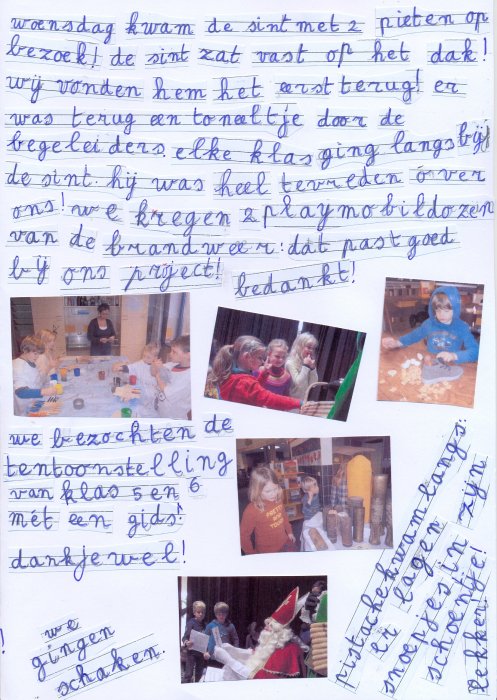 woensdag kwam de sint met 2 pieten op
bezoek! de sint zat vast op het dak!
wij vonden hem het eerst terug! er
was terug een toneeltje door de
begeleiders. elke klas ging langs bij
de sint. hij was heel tevreden over
ons! we kregen 2 playmobildozen
van de brandweer: dat past goed
bij ons project! bedankt!
we bezochten de
tentoonstelling
van klas 5 en 6
mét een gids!
dankjewel!
pistache kwam langs.
er lagen zijn
snoepjes in
schoentje!
lekker!
we
gingen
schaken.